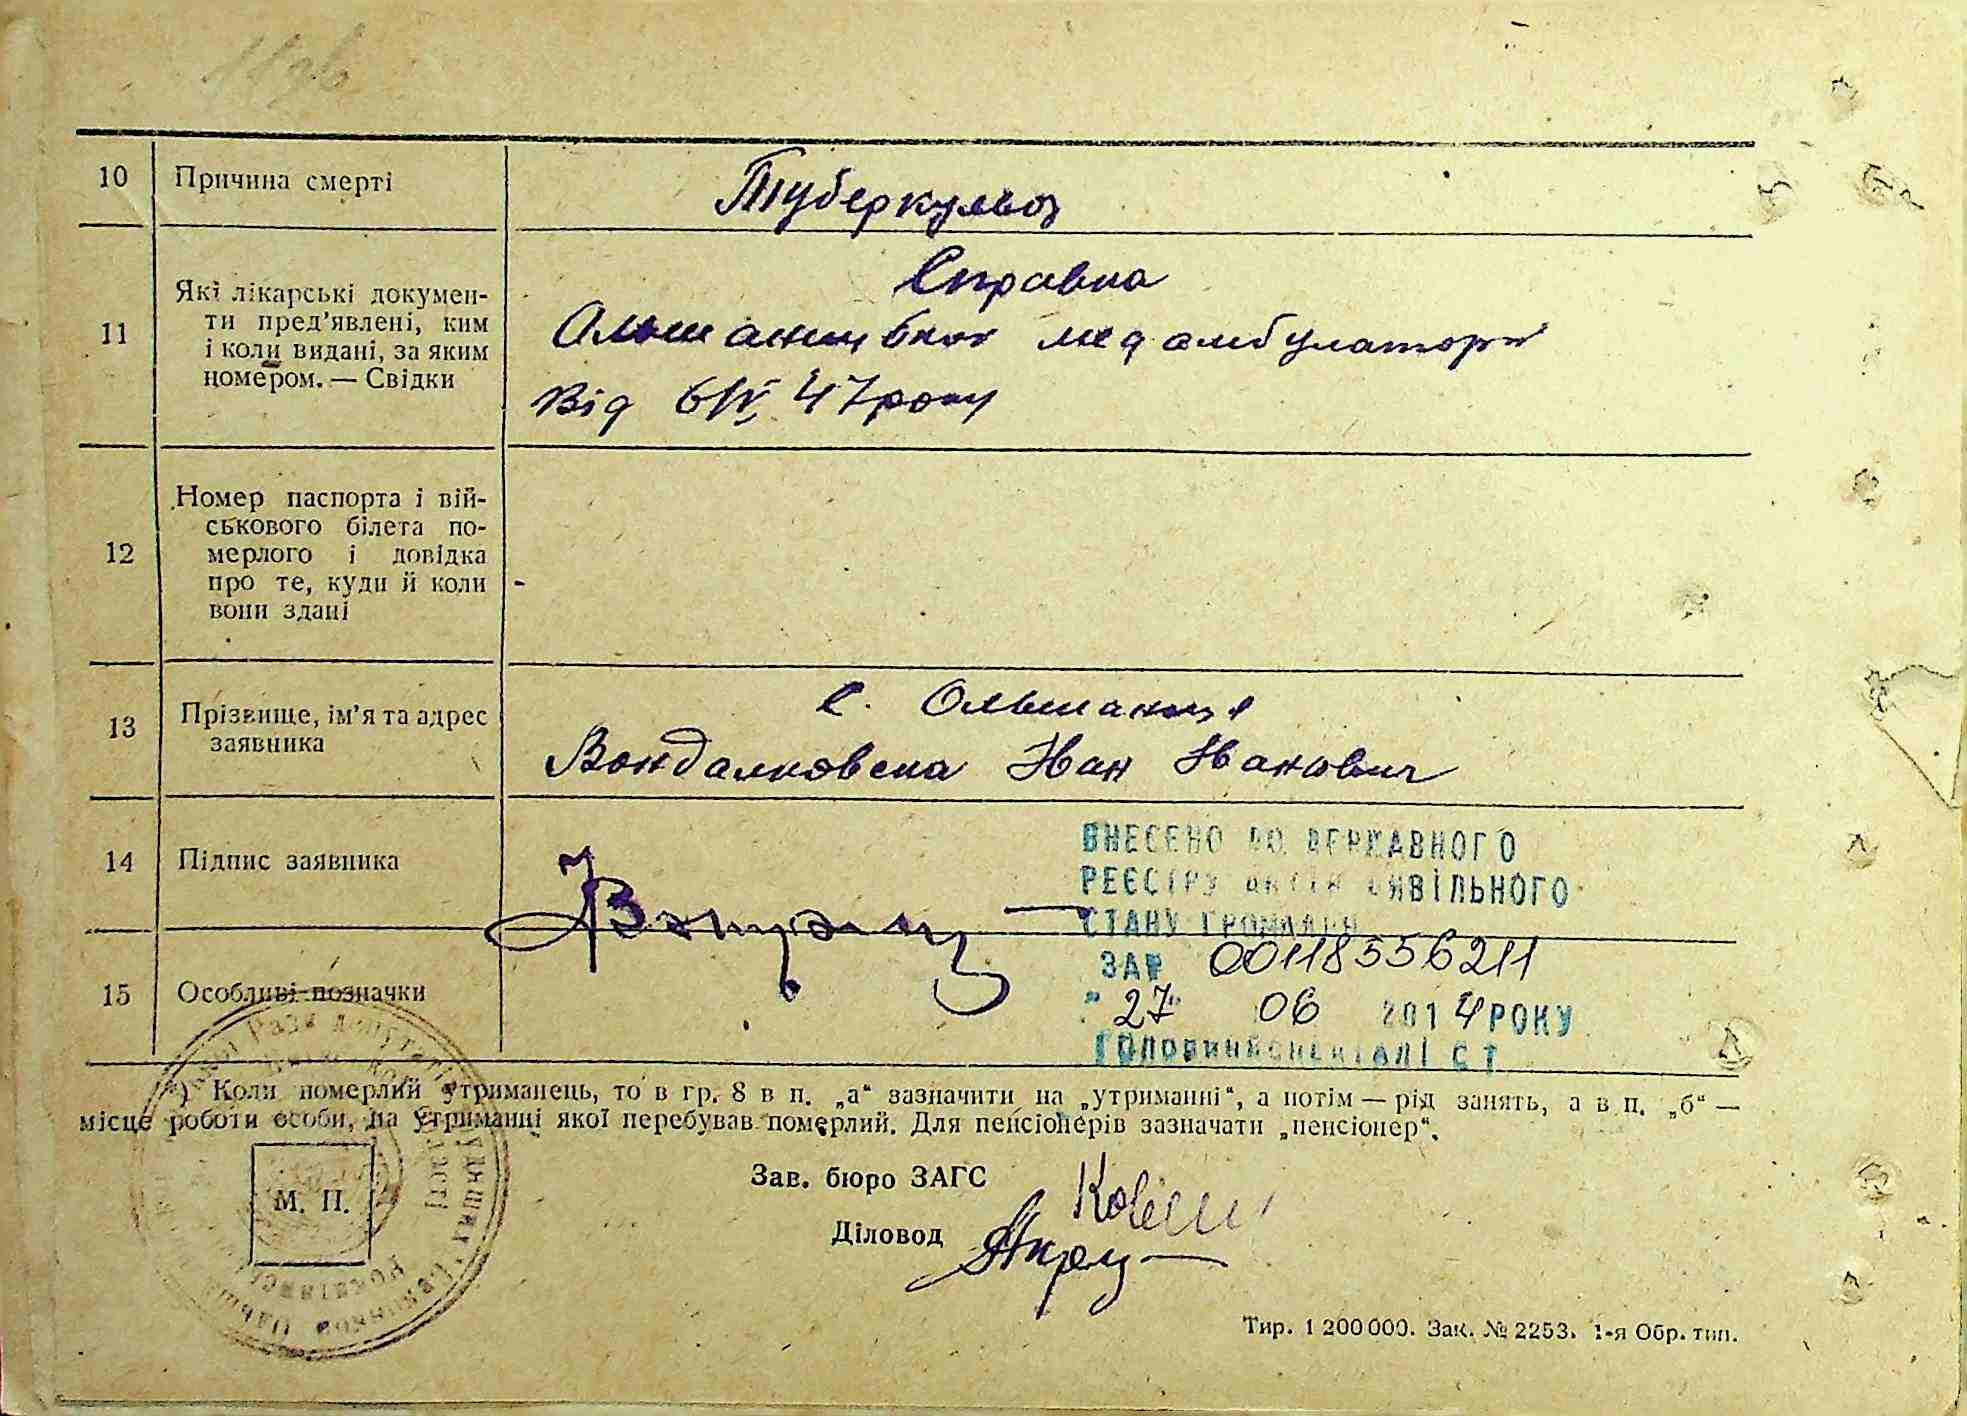 10 Причина смерті Туберкульоз
11 Які лікарські докумен-
ти пред'явлені, ким
і коли видані, за яким
номером. — Свідки
Справка
Ольшаницької медамбулаторії
від 6/IV 47 року
12 Номер паспорта і вій-
ськового білета по-
мерлого і довідка
про те, куди й коли
вони здані
-
13 Прізвище, ім'я та адрес
заявника
с. Ольшаниця
Вондалковська Іван Іванович
14 Підпис заявника
ВНЕСЕНО ДО ДЕРЖАВНОГО
РЕЄСТРУ АКТІВ ЦИВІЛЬНОГО
СТАНУ ГРОМАДЯН
ЗА № 00118556211
"27" 06 2014 РОКУ
15 Особливі позначки
*) Коли померлий утриманець, то в гр. 8 в п. „а“ зазначити на „утриманні“, а потім — рід занять, а в п. „б“ —
місце роботи особи, на утриманні якої перебував померлий. Для пенсіонерів зазначати „пенсіонер“.
М. П.
Зав. бюро ЗАГС
Діловод
Тир. 1 200 000. Зак. № 2253. 1-я Обр. тип.